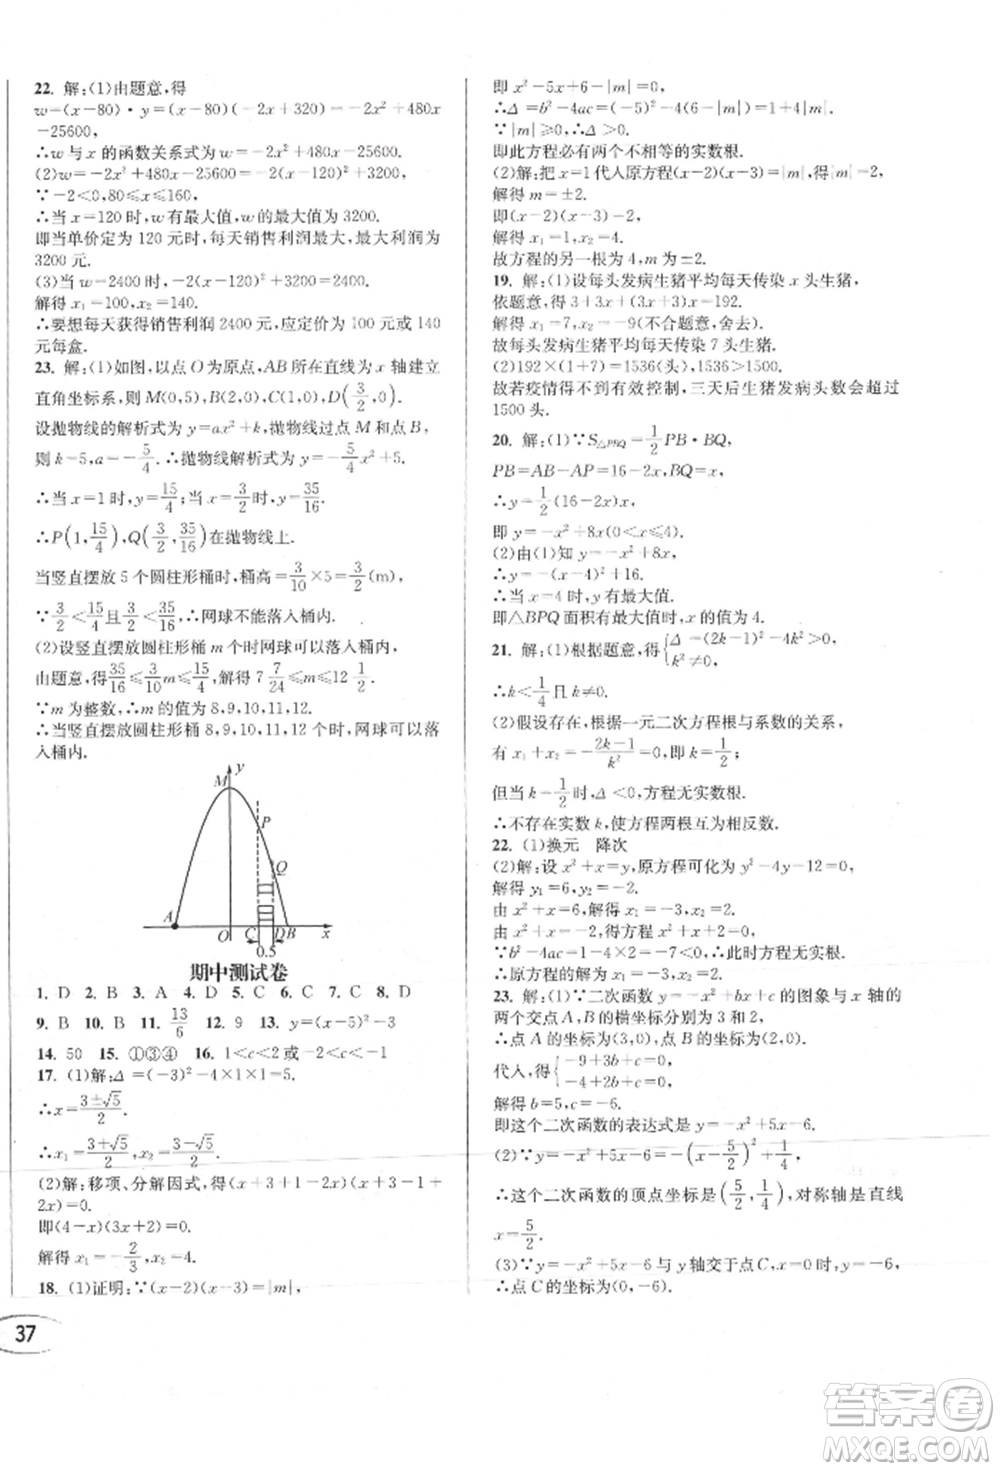 22. 解:(1)由题意,得
w=(x-80)·y=(x-80)(-2x+320)=-2x²+480x
-25600,
∴w 与 x 的函数关系式为 w=-2x²+480x-25600.
(2)w=-2x²+480x-25600=-2(x-120)²+3200.
∵-2<0,80≤x≤160,
∴当 x=120时,w 有最大值,w 的最大值为 3200.
即当单价定为 120 元时,每天销售利润最大,最大利润
3200 元.
(3)当 w=2400 时,-2(x-120)²+3200=2400.
解得 x₁=100,x₂=140.
∴要想每天获得销售利润 2400 元,应定价为 100 元或 140
元每盒.
23. 解:(1)如图,以点 O 为原点,AB 所在直线为 x 轴建立
直角坐标系,则 M(0,5),B(2,0),C(1,0),D(3/2,0).
设抛物线的解析式为 y=ax²+k,抛物线过点 M 和点 B,
则 k=5,a=-5/4.∴抛物线解析式为 y=-5/4x²+5.
∴当 x=1 时,y=15/4;当 x=3/2时,y=35/16.
∴P(1,15/4),Q(3/2,35/16)在抛物线上.
当竖直摆放 5 个圆柱形桶时,桶高=3/10×5=3/2(m),
∵3/2<15/4且3/2<35/16,∴网球不能落入桶内.
(2)设竖直摆放圆柱形桶 m 个时网球可以落入桶内,
由题意,得35/16≤3/10m≤15/4,解得 7 7/24≤m≤12 1/2.
∵m 为整数,∴m 的值为 8,9,10,11,12.
∴当竖直摆放圆柱形桶 8,9,10,11,12 个时,网球可以落
入桶内.
y
M
P
Q
A
O C D B x
0.5
期中测试卷
1. D 2. B 3. A 4. D 5. C 6. C 7. C 8. D
9. B 10. B 11. 13/6 12. 9 13. y=(x-5)²-3
14. 50 15. ①③④ 16. 1<c<2或-2<c<-1
17. (1)解:Δ=(-3)²-4×1×1=5.
∴x=(3±√5)/2.
∴x₁=(3+√5)/2,x₂=(3-√5)/2.
(2)解:移项、分解因式,得 4(3x+2)-x(3x+
2x)=0.
即(4-x)(3x+2)=0.
解得 x₁=-2/3,x₂=4.
18. (1)证明:∵(x-2)(x-3)=|m|,
37
即 x²-5x+6-|m|=0,
∴Δ=b²-4ac=(-5)²-4(6-|m|)=1+4|m|.
∵|m|≥0,∴Δ>0.
即此方程必有两个不相等的实数根.
(2)解:把 x=1代入原方程(x-2)(x-3)=|m|,即|m|=2,
解得 m=±2.
即(x-2)(x-3)=2.
解得 x₁=1,x₂=4.
故方程的另一根为 4,m 为±2.
19. 解:(1)设每头发病生猪平均每天传染 x 头生猪,
依题意,得 3+3x+x(3+3x)=192.
解得 x₁=7,x₂=-9(不合题意,舍去).
故每头发病生猪平均每天传染 7 头生猪.
(2)192×(1+7)=1536(头),1536>1500.
故若疫情得不到有效控制,三天后生猪发病头数会超过
1500 头.
20. 解:(1)∵S△PBQ=1/2PB·BQ,
PB=AB-AP=16-2x,BQ=x,
∴y=1/2(16-2x)x,
即 y=-x²+8x(0<x≤4).
(2)由(1)知 y=-x²+8x,
∴y=-(x-4)²+16.
∴当 x=4 时,y 有最大值.
即△BPQ 面积有最大值时,x 的值为 4.
21. 解:(1)根据题意,得{Δ=(2k-1)²-4k²>0, k²≠0.
∴k<1/4且 k≠0.
(2)假设存在,根据一元二次方程根与系数的关系,
有 x₁+x₂=-(2k-1)/k²=0,即 k=1/2;
但当 k=1/2时,Δ<0,方程无实数根.
∴不存在实数 k,使方程两根互为相反数.
22. (1)换元 降次
(2)解:设 x²+x=y,原方程可化为 y²-4y-12=0,
解得 y₁=6,y₂=-2.
由 x²+x=6,解得 x₁=-3,x₂=2.
由 x²+x=-2,得方程 x²+x+2=0,
∵b²-4ac=1-4×2=-7<0,∴此时方程无实根.
∴原方程的解为 x₁=-3,x₂=2.
23. 解:(1)∵二次函数 y=-x²+bx+c 的图象与 x 轴的
两个交点 A,B 的横坐标分别为 3 和 2,
∴点 A 的坐标为(3,0),点 B 的坐标为(2,0).
代入,得{-9+3b+c=0, -4+2b+c=0,
解得 b=5,c=-6.
即这个二次函数的表达式为 y=-x²+5x-6.
(2)∵y=-x²+5x-6=-(x-5/2)²+1/4,
∴这个二次函数的顶点坐标为(5/2,1/4),对称轴是直线
x=5/2.
(3)∵y=-x²+5x-6 与 y 轴交于点 C,当 x=0 时,y=-6,
∴点 C 的坐标为(0,-6).
答案卷
MXQE.COM